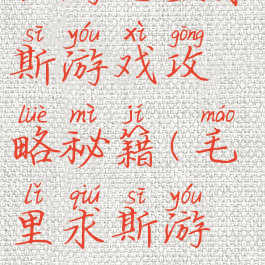 sī yóu xì gōng
斯游戏攻
lüè mì jí máo
略秘籍(毛
lǐ qiú sī yóu
里求斯游